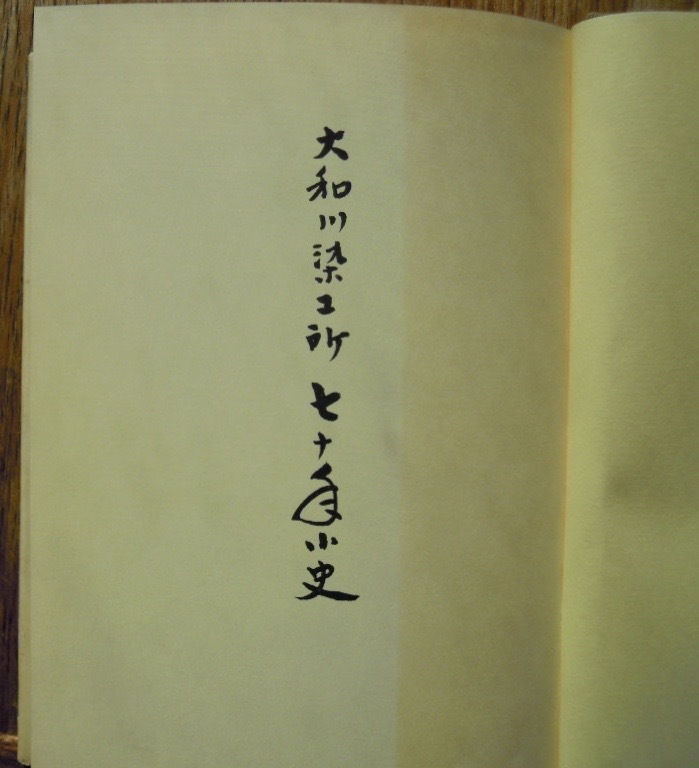 大和川染工所 七十年小史